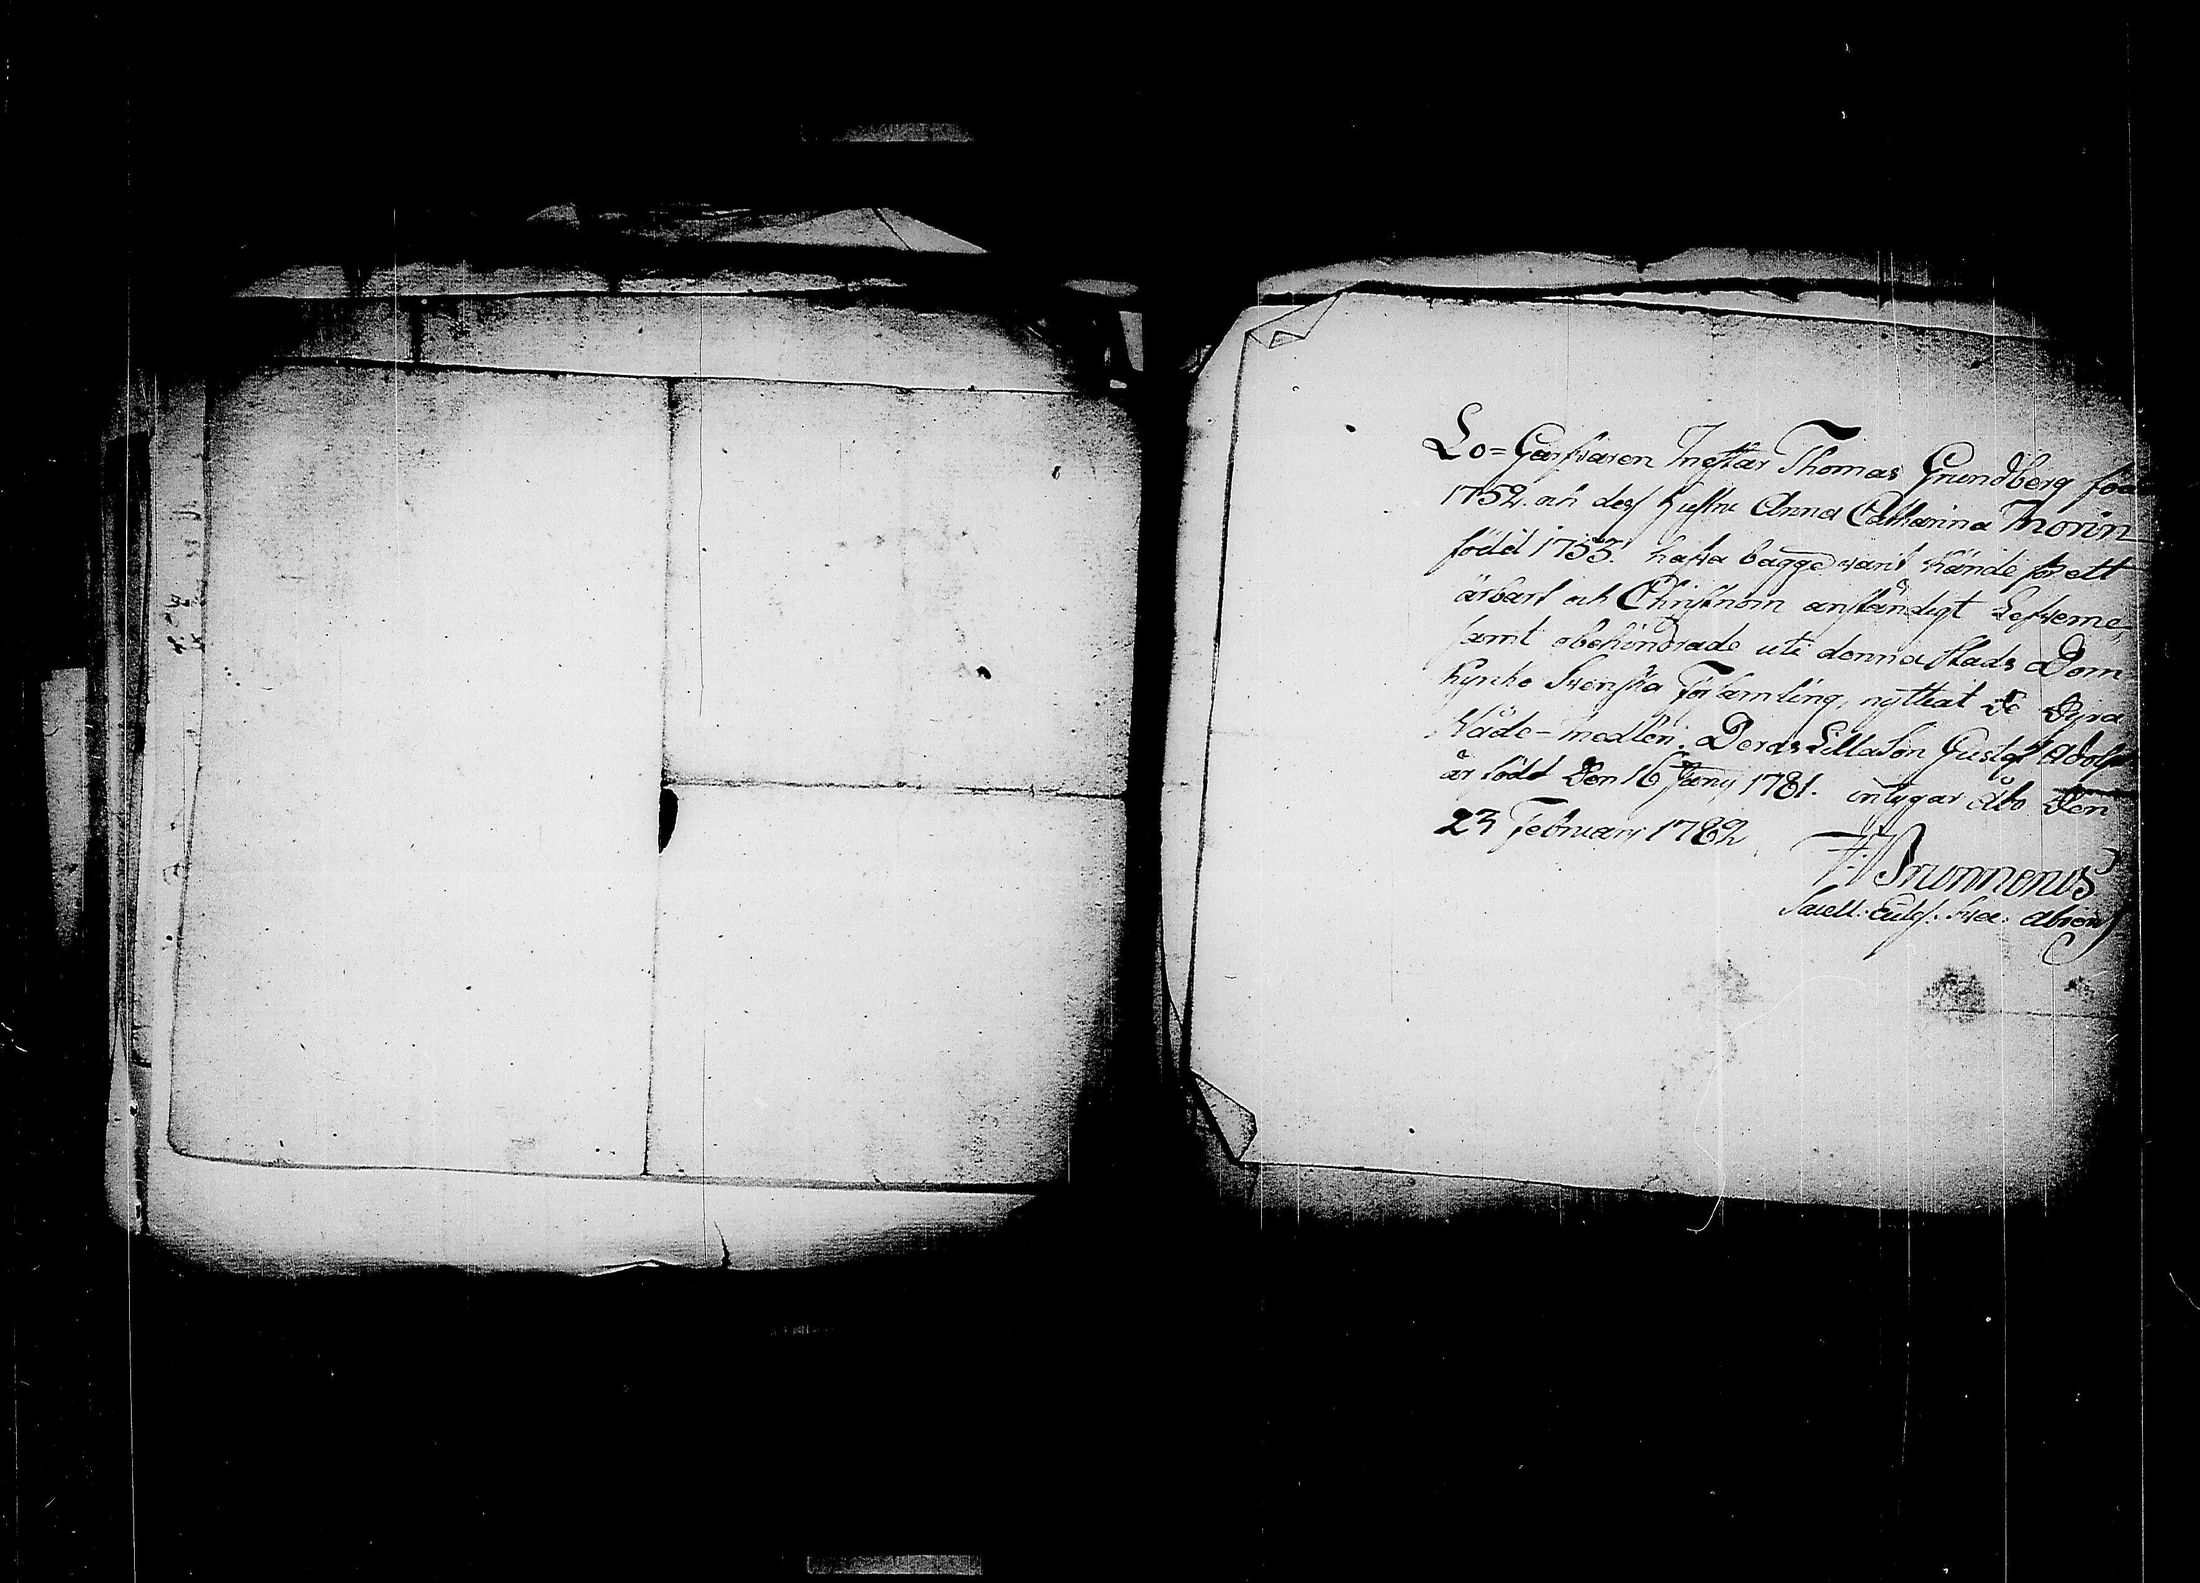 Lo=Garfwaren Mestar Thomas Grundberg föd
1752. och dess hustru Anna Catharina Thorin
född 1755. hafwa bagge warit kände för ett
ärbart och Christnom anständigt Lefwerne,
samt obehindrade uti denna stads Dom
kyrko Swenska Församling, nyttiat de dyra
Nåde-medlen. Deras Lilla Son Gustaf Adolph
är född den 16 Juny 1781. intygar Åbo den
23 February 1782
Brunnerus
Sacell: Eccles: Sve: Aboens